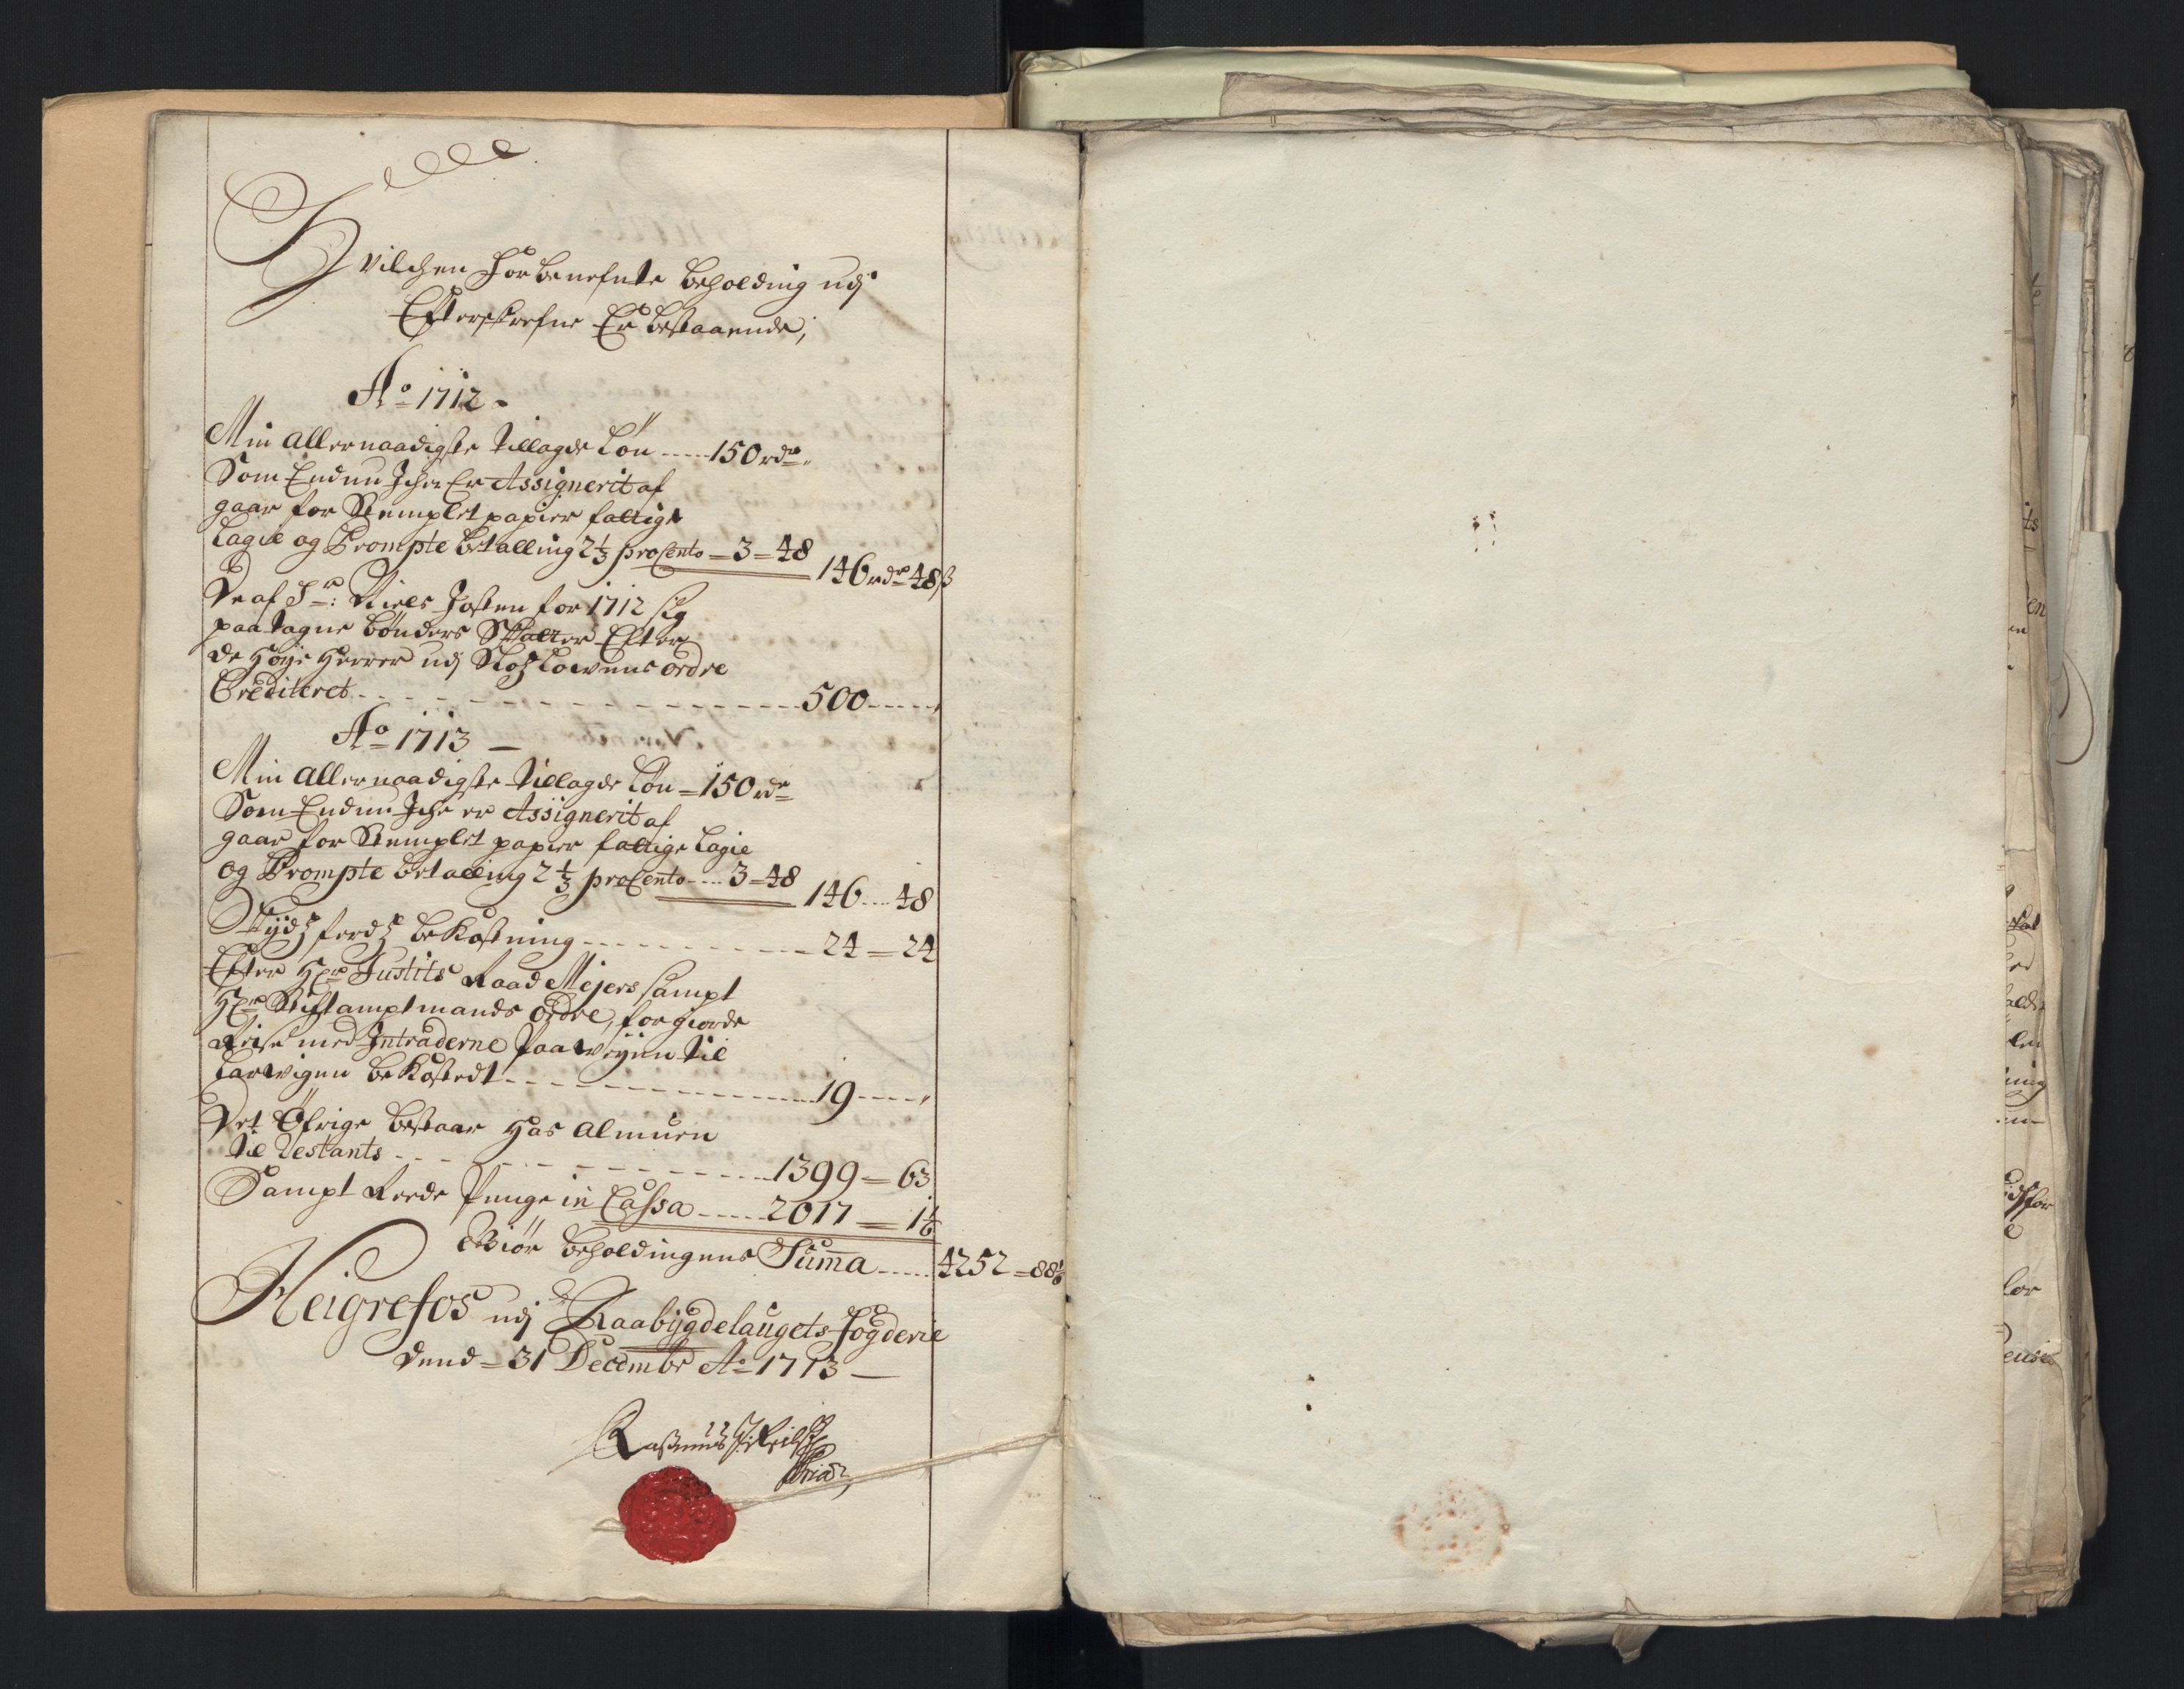 Hvilchen Forbenefnte beholding udj
Efterskrefne Er bestaaende,
Ao 1712 -
Min allernaadigste tillagde Løn ----- 150 rdr
Som Endnu Iche Er Assignerit af
gaar for Stemplet papier fattige
Lagie og Prompte betalling 2 1/3 procento = 3 = 48
146 rdr 48 ß
De af Sr: Niels Josten for 1712 sig
paatagne bønders Skatter Efter
de Høÿe Herrer udj Slotz Lovens ordre
Crediteret - - - - 500 - - -
Ao 1713 -
Min allernaadigste tillagde Løn = 150 rdr
Som Endnu Iche er Assignerit af
gaar for Stemplet papier fattige Lagie
og Prompte betalling 2 1/3 procento ---- 3 = 48
146 --- 48
Skÿdtz ferdtz bekostning - - - - 24 = 24
Efter Hr Justits Raad Mejers sampt
Hr Stiftamptmands ordre, for giorde
Reise med Intraderne paa weÿen til
Larwigen bekostedt - - - - 19 - - -
Det Øfrige bestaar Hos almuen
til Restants - - - - 1399 = 63
Sampt Rede Penge in Cassa ---- 2017 = 1 1/6
Giør beholdingens Summa ---- 4252 = 88 1/6
Heigrefos udj Raabÿgdelaugets Fogderie
dend = 31 Decembr Ao 1713 -
Rasmus